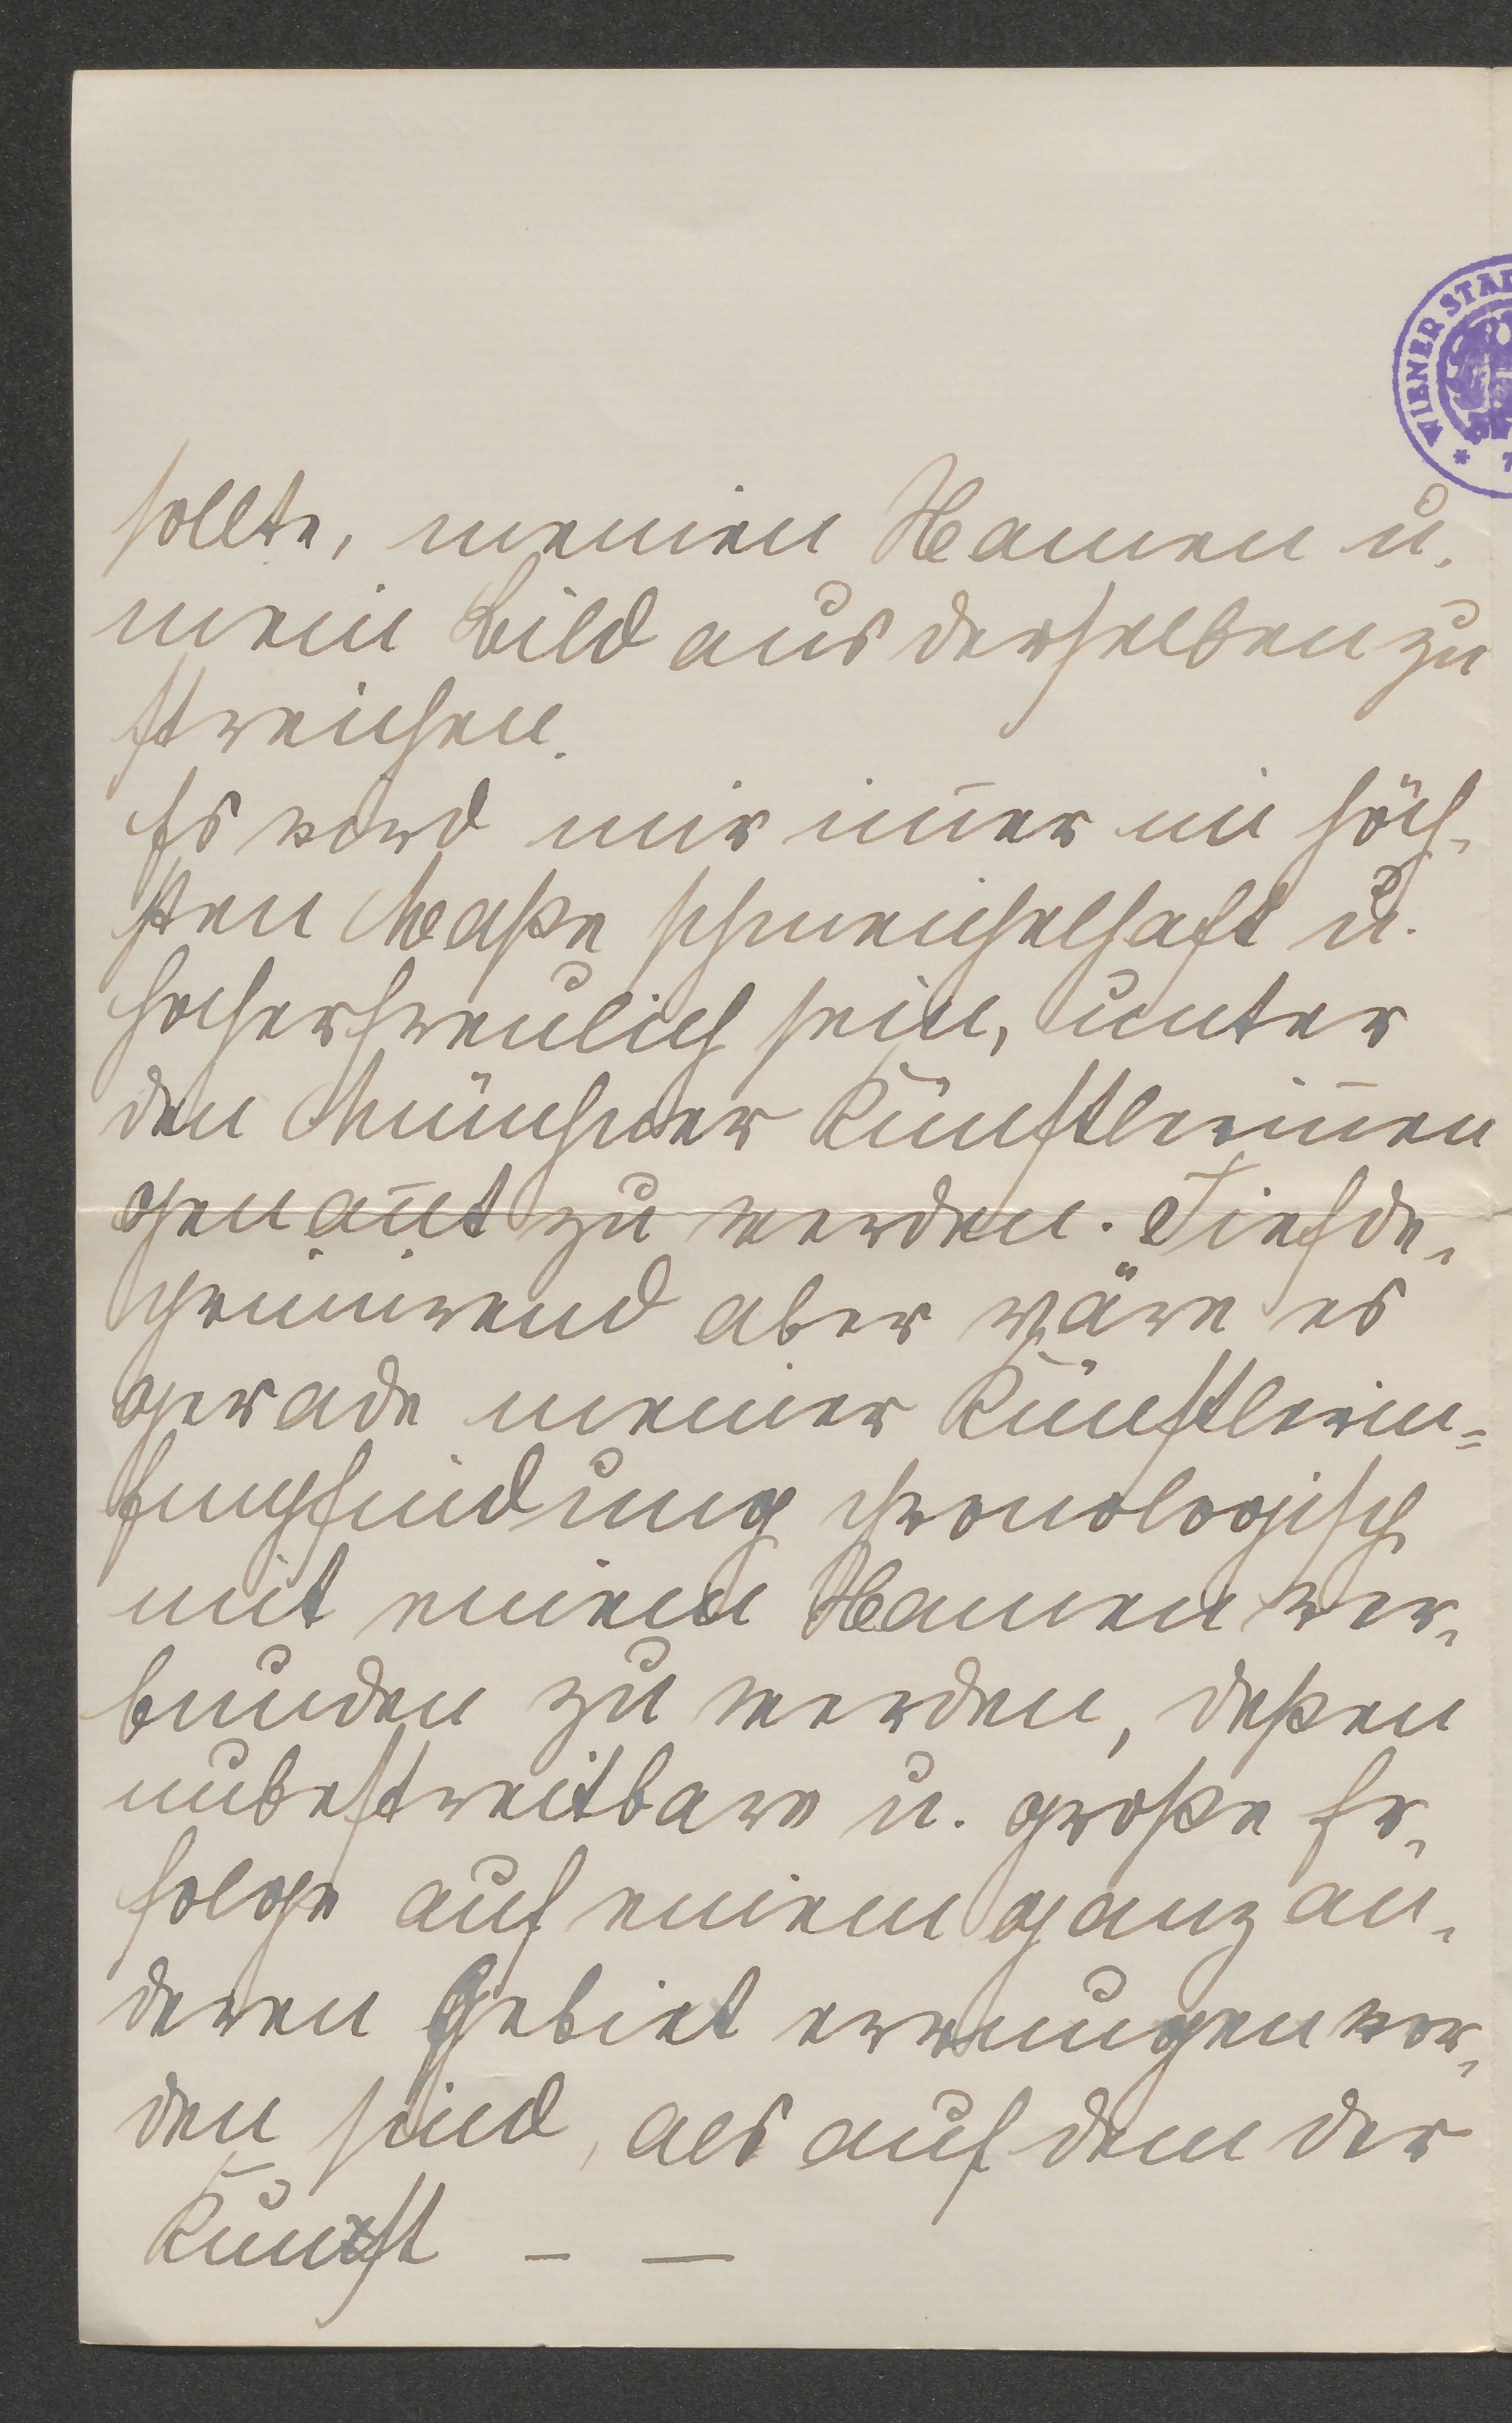 WIENER STA
sollte, meinen Namen u.
mein Bild aus derselben zu
streichen.
Es wird mir im̄er im höch-
sten Maße schmeichelhaft u.
hocherfreulich sein, unter
den Münchner Künstlerin̄en
genan̄t zu werden. Tiefde-
primirend aber wäre es
gerade meiner Künstlerin-
Empfindung chronologisch
mit einem Namen ver-
bunden zu werden, deßen
unbestreitbare u. große Er-
folge auf einem ganz an-
deren Gebiet errungen wor-
den sind, als auf dem der
Kunst – —